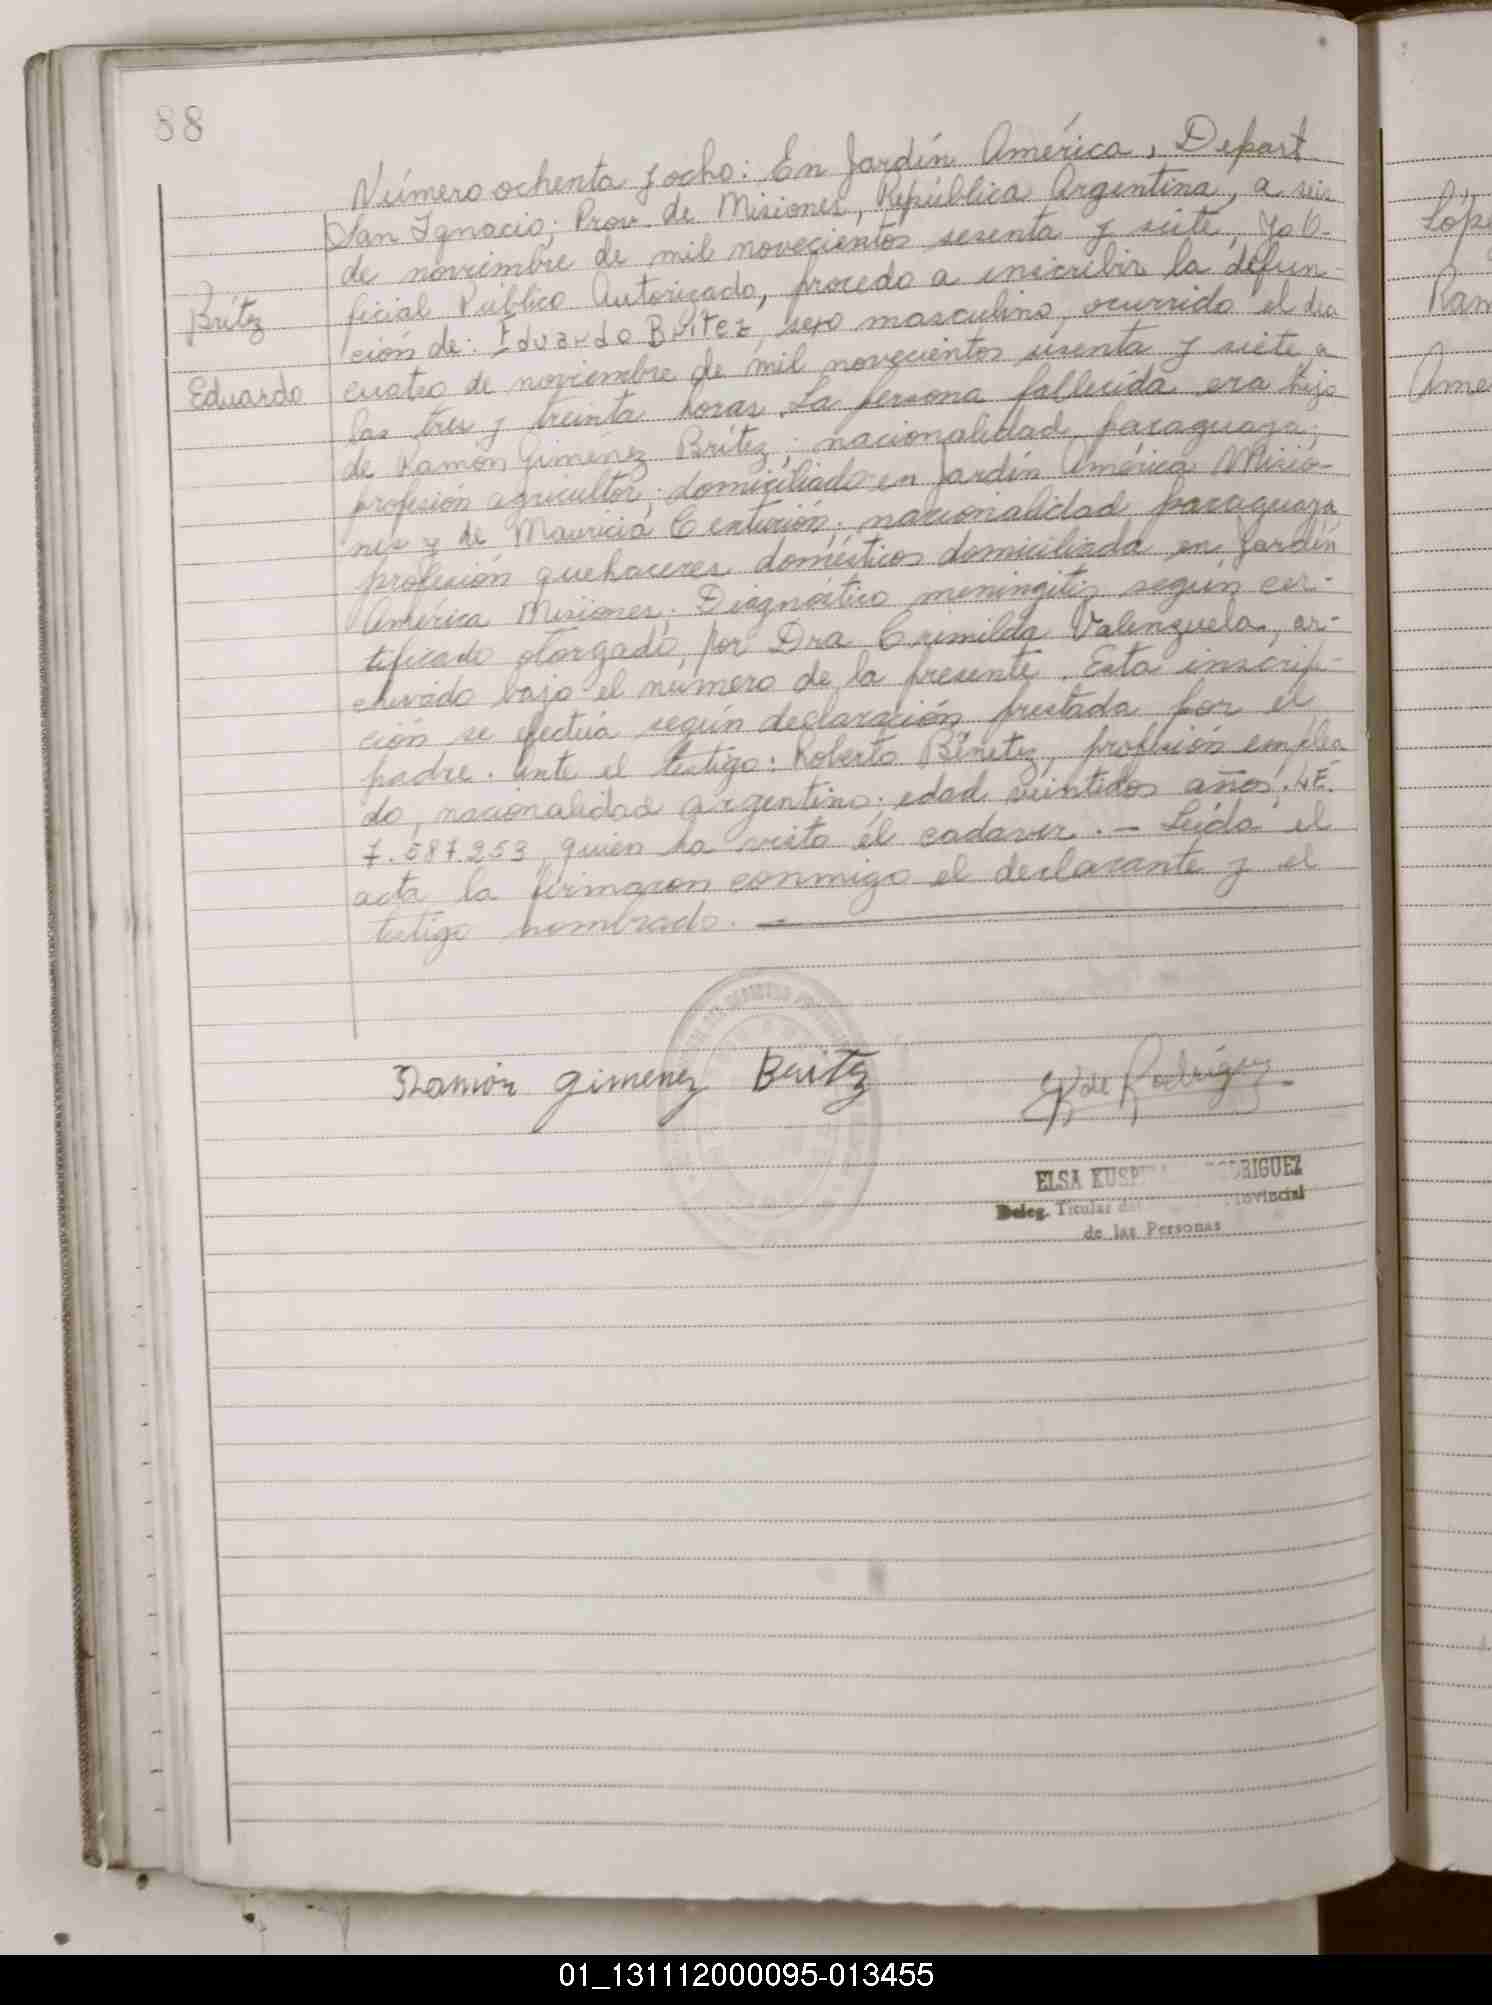 88
Número ochenta y ocho: En Jardín América, Depart.
San Ignacio; Prov. de Misiones, República Argentina, a seis
de noviembre de mil novecientos sesenta y siete, Yo O-
ficial Público Autorizado, procedo a inscribir la defun-
Brítez
ción de: Eduardo Britez, sexo masculino, ocurrido el dia
Eduardo
cuatro de noviembre de mil novecientos sesenta y siete a
las tres y treinta horas. La persona fallecida era hijo
de Ramón Giménez Brítez; nacionalidad paraguaya;
profesión agricultor; domiciliado en Jardín América Misio-
nes y de Mauricia Centurión; nacionalidad paraguaya
profesión quehaceres domésticos domiciliada en Jardín
América Misiones. Diagnóstico meningitis según cer-
tificado otorgado, por Dra Crimilda Valenzuela, ar-
chivado bajo el número de la presente. Esta inscrip-
ción se efectúa según declaración prestada por el
padre. Ante el testigo: Roberto Bénitez, profesión emplea
do, nacionalidad argentino; edad veintidos años, L.E.
7.587.253, quien ha visto el cadaver. - Leída el
acta la firmaron conmigo el declarante y el
testigo nombrado.
Ramón Gimenez Britez
de Rodríguez
ELSA KUSP RODRIGUEZ
Deleg. Titular del Provincial
de las Personas
Lópe
Ram
Ame
01_131112000095-013455